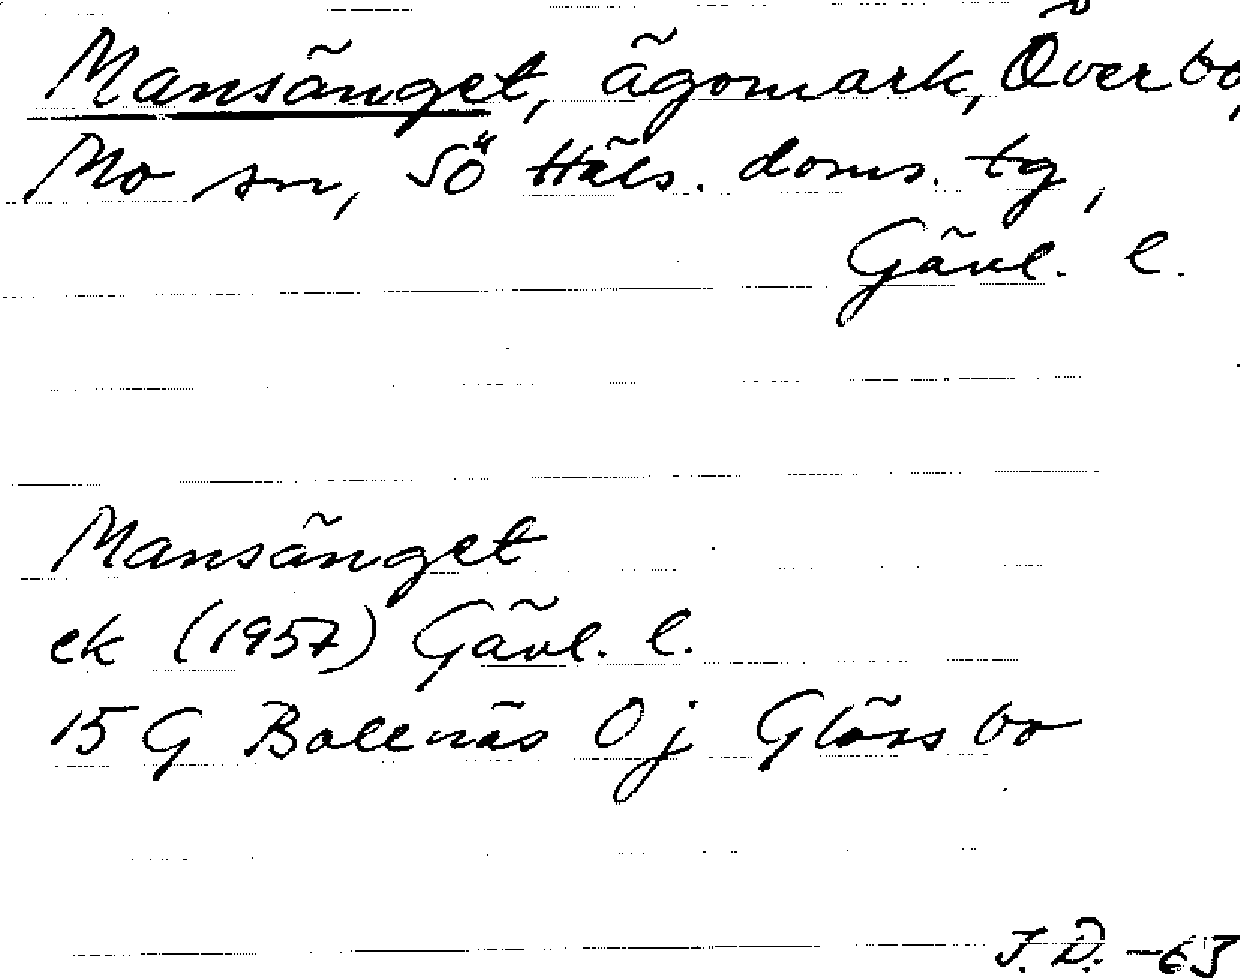 Mansänget, ägomark, Överbo,
Mo sn, Sö Häls. doms. tg,
Gävl. l.
Mansänget
ek (1957) Gävl. l.
15 G Bollnäs 0 j Glössbo
J. D. -63